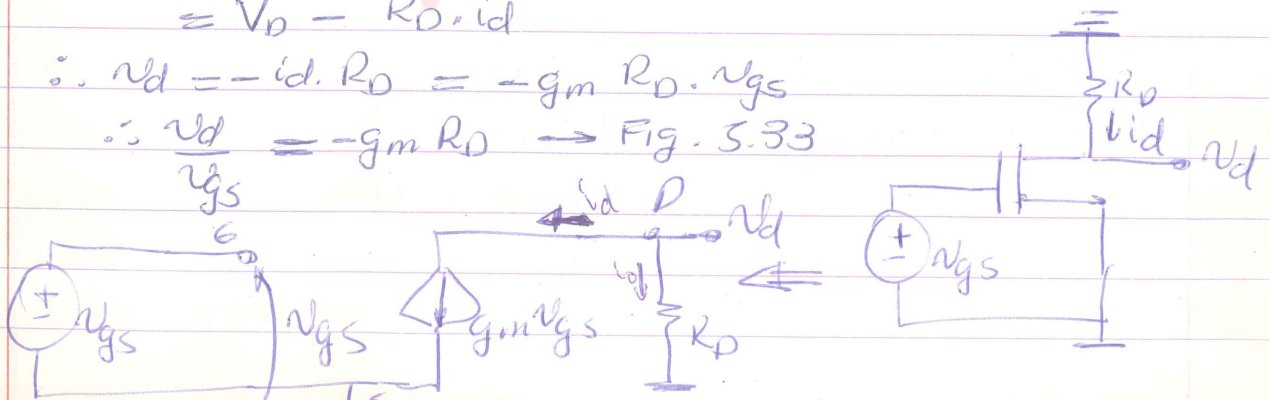 = VD - RD. id
∴ vd = -id. RD = -gm RD. vgs
∴ vd/vgs = -gm RD → Fig. 5.33
RD
id
vd
id D vd
G
vgs
vgs
gm vgs
RD
vgs